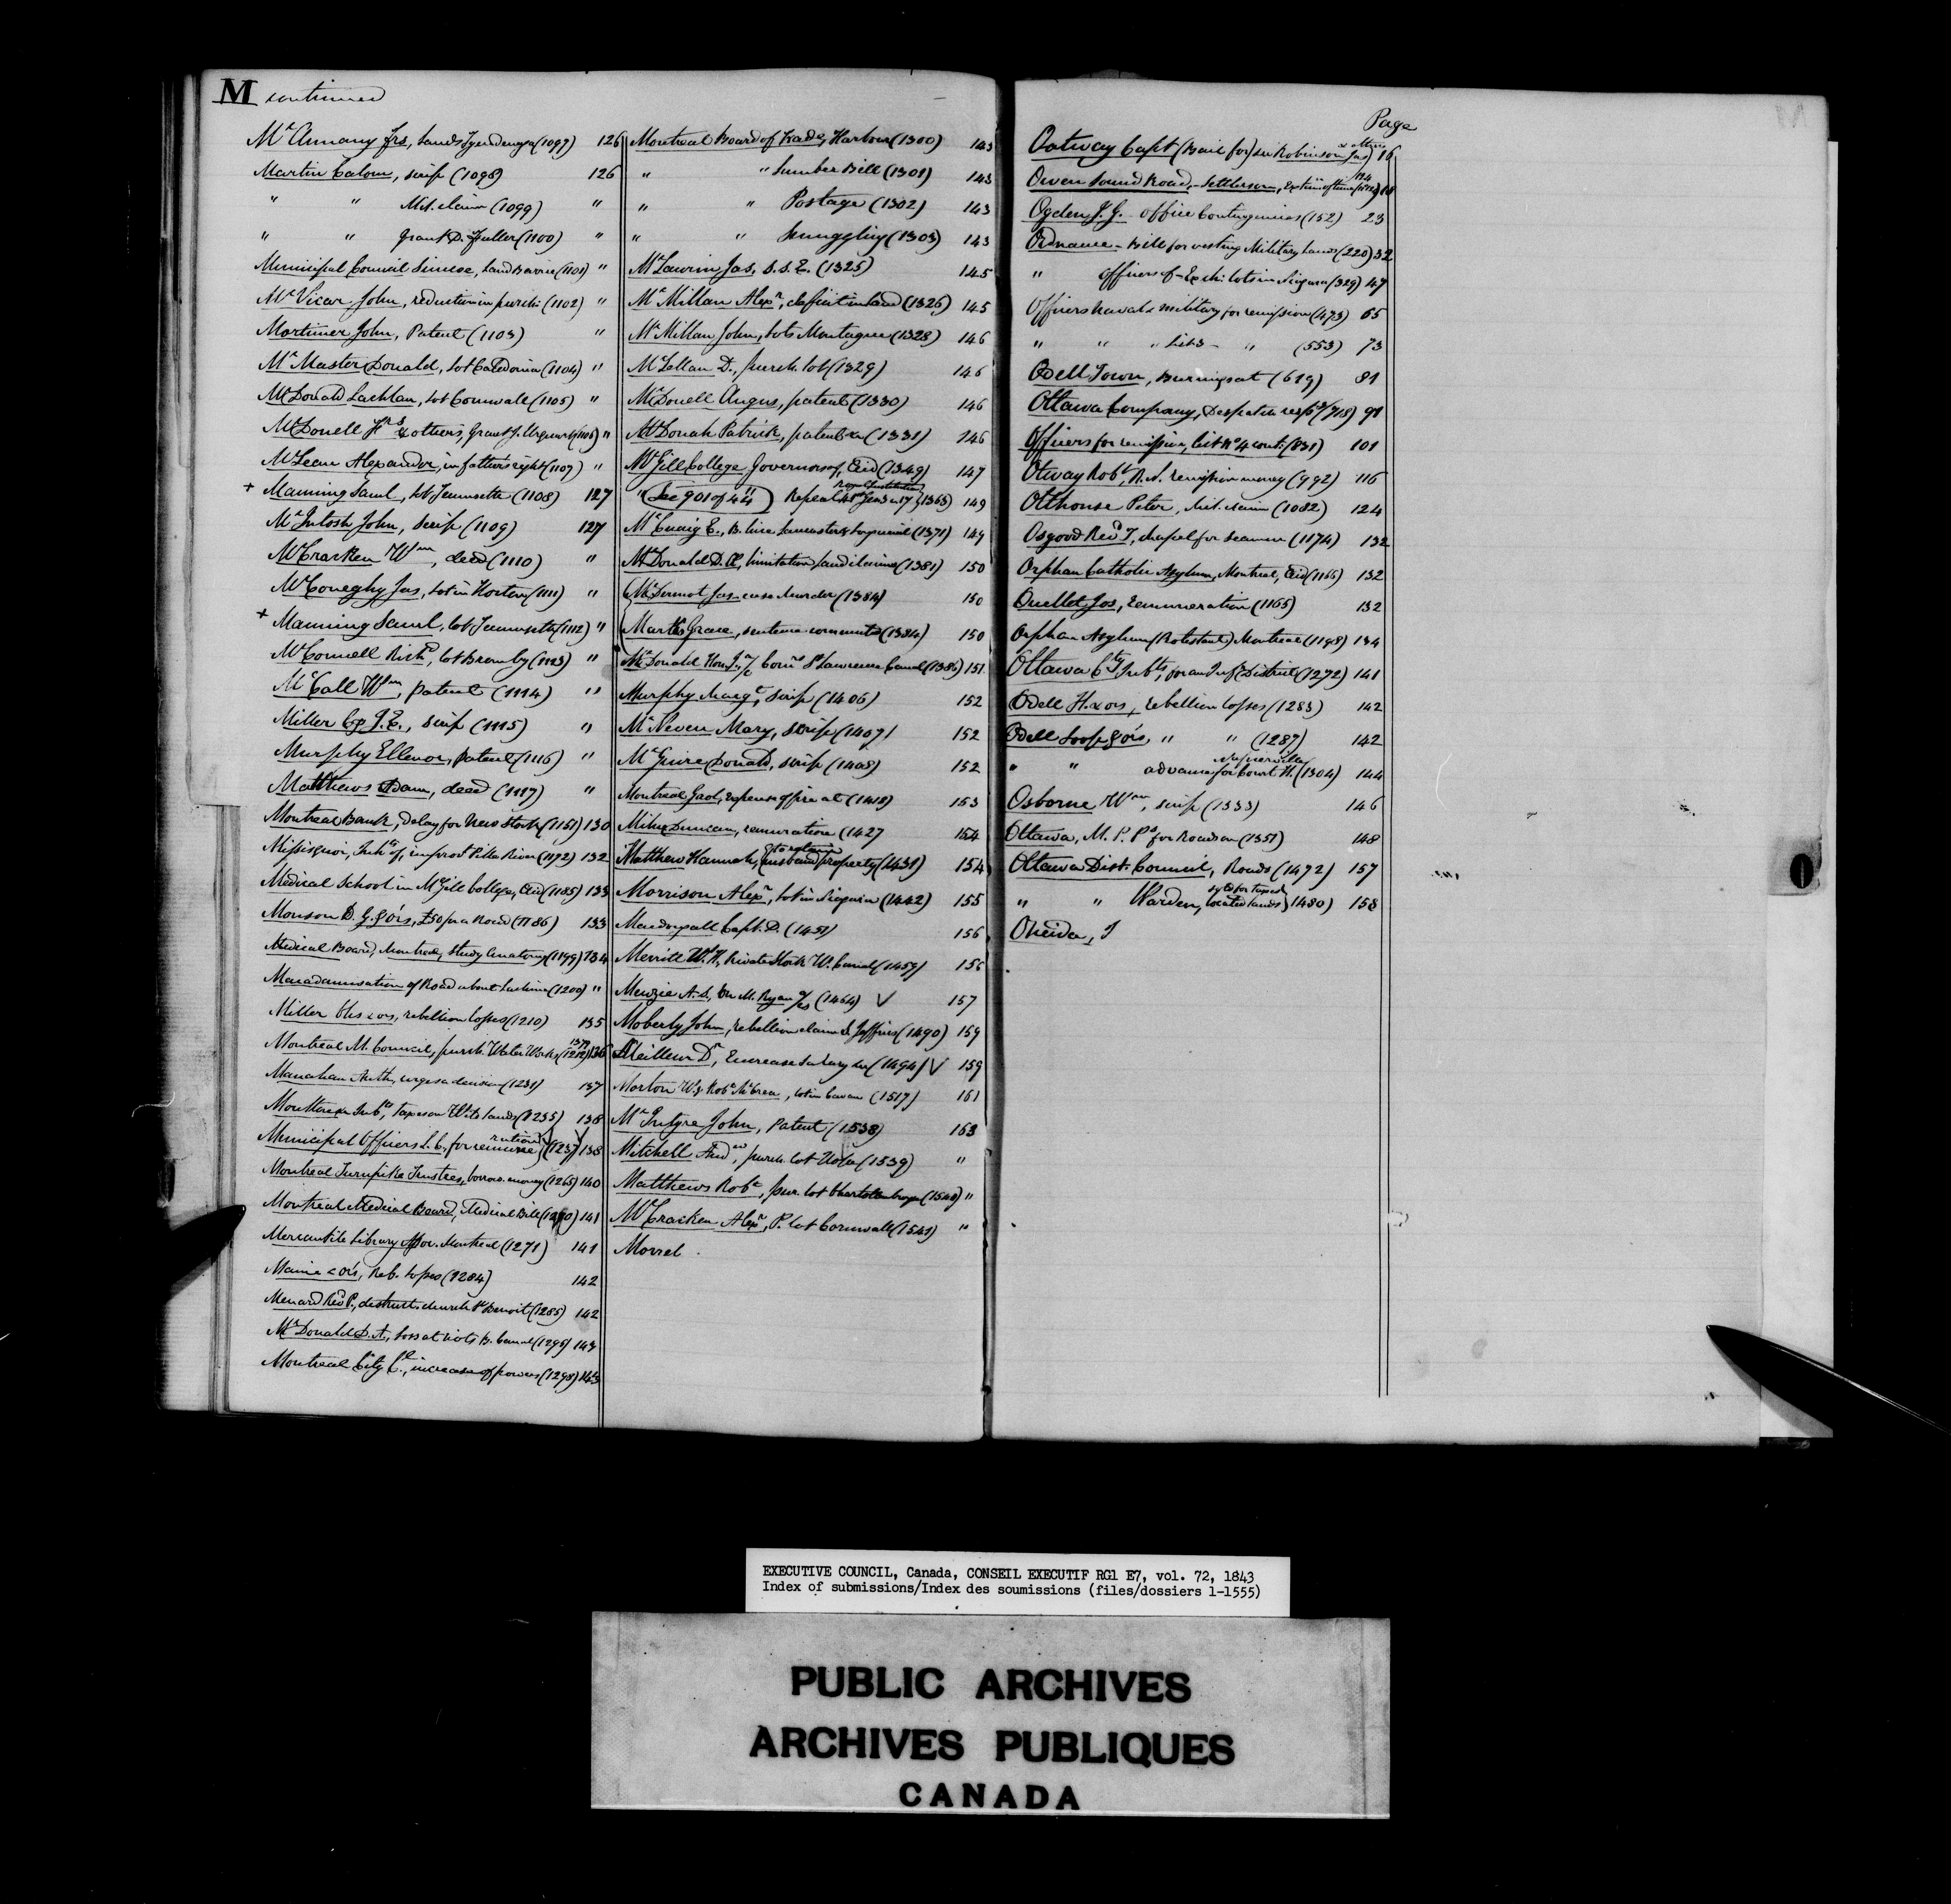 M continued
McAnnany Jrs, Lands Tyendenaga (1097) 126
Martin Calom, scrip (1098) 126
" " Mil. claim (1099) "
" " Grant D. Fuller (1100) "
Municipal Council Simcoe, Land Barrie (1101) "
McVicar John, reduction in purch: (1102) "
Mortimer John, Patent (1103) "
McMaster Donald, lot Caledonia (1104) "
McDonald Lachlan, lot Cornwall (1105) "
McDonell & others, Grant J. Urquhart (1106) "
McLean Alexander, in father's right (1107) "
+ Manning Saml, lot Tecumseth (1108) 127
McIntosh John, scrip (1109) 127
McCracken Wm, deed (1110) "
McConeghy Jas, lot in Horton (1111) "
+ Manning Saml, lot Tecumseth (1112) "
McConnell Richd, lot Bromley (1113) "
McCall Wm, patent (1114) "
Miller J. E., scrip (1115) "
Murphy Ellenor, patent (1116) "
Matthews Adam, deed (1117) "
Montreal Bank, delay for New Stock (1151) 130
Missisquoi, Inhts of, improvt Pike River (1172) 132
Medical School in McGill College, Aid (1185) 133
Monson D. G. & ors, £50 for a Road (1186) 133
Medical Board, Montreal, Study Anatomy (1199) 134
Macadamisation of Road about Lachine (1200) "
Miller Chs & ors, rebellion losses (1210) 135
Montreal M. Council, purch. Water Works (1212) 136
Manahan Anth, urges a decision (1231) 137
Inhts, taxes on Wild lands (1235) 138
Municipal Officers L. C. for remuneration (1237) 138
Montreal Turnpike Trustees, borrow money (1265) 140
Montreal Medical Board, Medical Bill (1270) 141
Mercantile Library Assoc. Montreal (1271) 141
& ors, Reb. losses (1284) 142
Menard Revd P., destruct. church St Benoit (1285) 142
McDonald D. A., loss at riots B. Canal (1296) 143
Montreal City Cl., increase of powers (1298) 143
Montreal Board of Trade, Harbour (1300) 143
" " Lumber Bill (1301) 143
" " Postage (1302) 143
" " Smuggling (1303) 143
McLaurin Jas, D.S.E. (1325) 145
McMillan Alexr, deficit in land (1326) 145
McMillan John, lots Montague (1328) 146
McLellan D., purch. lot (1329) 146
McDonell Angus, patent (1330) 146
McDonah Patrick, patent &c (1331) 146
McGill College Governors of, Aid (1349) 147
" (See 901 of 44) Repeal Geo 3 c. 17 (1363) 149
Royal Institution
McCuaig E., B. line Lancaster & Longueuil (1371) 149
McDonald D. Æ, limitation land claims (1381) 150
McDermot Jas. case Murder (1384) 150
Marks Grace, sentence commuted (1384) 150
McDonald Hon. J., a/c Comr St Lawrence Canal (1386) 151
Murphy Margt, scrip (1406) 152
McNeven Mary, scrip (1407) 152
McGuire Donald, scrip (1408) 152
Montreal Gaol, expense of fire at (1418) 153
Milne Duncan, remuneration (1427 154
Matthew Hannah, to retain husband property (1431) 154
Morrison Alexr, lot in Niagara (1442) 155
Macdougall Capt. D. (1451) 156
Merritt W. H., Private Stock W. Canal (1459) 156
Menzie A. S., M. Ryan a/cs (1464) V 157
Moberly John, rebellion claim S. Jeffries (1490) 159
Meilleur Dr, Encrease Salary &c (1494) V 159
Morton Wm & Robt McCrea, lot in Cavan (1517) 161
McIntyre John, Patent (1538) 163
Mitchell Andw, purch. lot (1539) "
Matthews Robt, pur. lot Charlottenburgh (1540) "
McCracken Alexr, P. lot Cornwall (1541) "
Morrel
Page
Oatway Capt (Bail for) see Robinson Jas) 16
Owen Sound Road, Settlers on, Extn of time 18
Ogden J. G. office Contingencies (152) 23
Ordnance - Bill for vesting Military Lands (220) 32
" Officers of - Exch: lots in Niagara (329) 47
Officers Naval & Military for remission (473) 65
" " " List 3 - " (553) 73
Odell Town, Burnings at (619) 81
Ottawa Company, Despatch respg (718) 91
Officers for remission, list No 4 cont: (831) 101
Otway Robt, R. N. remission money (992) 116
Olthouse Peter, Mil. claim (1082) 124
Osgood Revd T, chapel for seamen (1174) 132
Orphan Catholic Asylum, Montreal, Aid (1165) 132
Ouellet Jos, remuneration (1165) 132
Orphan Asylum (Protestant) Montreal (1198) 134
Ottawa Cty Inhts, for an Inf. District (1272) 141
Odell H. & ors, rebellion losses (1283) 142
Odell Loop & ors, " " (1287) 142
" " advance for Court H. Napierville (1304) 144
Osborne Wm, scrip (1333) 146
Ottawa, M. P. Ps for Road (1351) 148
Ottawa Dist. Council, Roads (1472) 157
" " Warden, for taxed located lands (1480) 158
Oneida, J
O
EXECUTIVE COUNCIL, Canada, CONSEIL EXECUTIF RG1 E7, vol. 72, 1843
Index of submissions/Index des soumissions (files/dossiers 1-1555)
PUBLIC ARCHIVES
ARCHIVES PUBLIQUES
CANADA